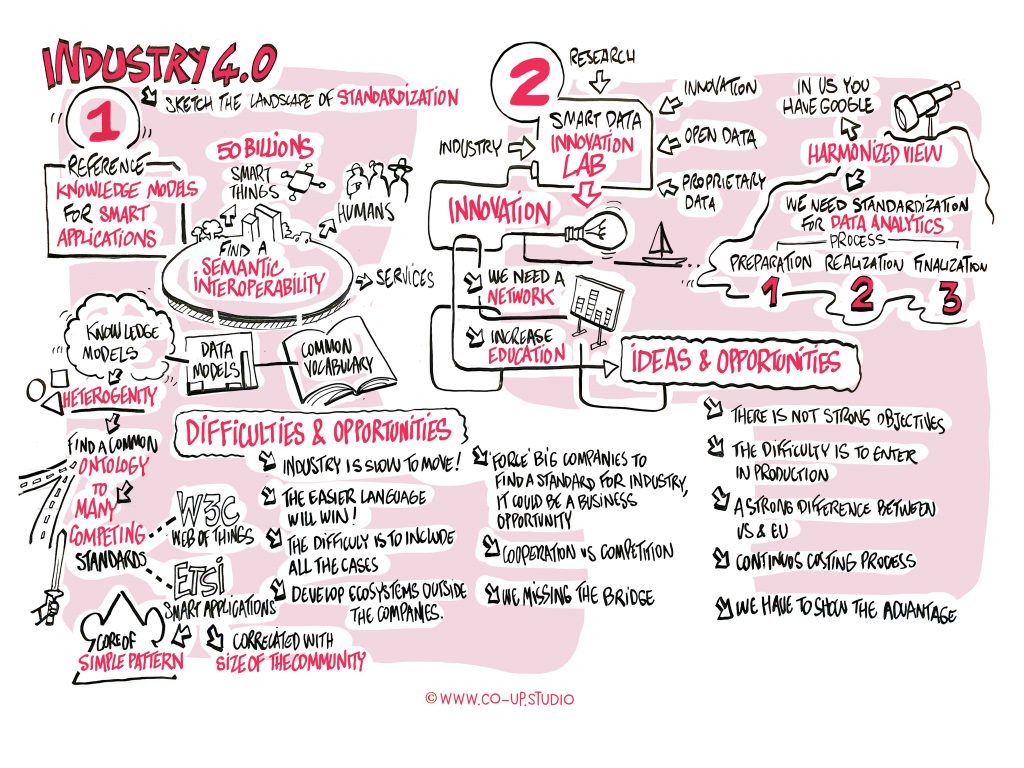 INDUSTRY 4.0
SKETCH THE LANDSCAPE OF STANDARDIZATION
1
REFERENCE
KNOWLEDGE MODELS
FOR SMART
APPLICATIONS
50 BILLIONS
SMART
THINGS
HUMANS
FIND A
SEMANTIC
INTEROPERABILITY
SERVICES
KNOWLEDGE
MODELS
DATA
MODELS
COMMON
VOCABULARY
HETEROGENITY
FIND A COMMON
ONTOLOGY
TO
MANY
COMPETING
STANDARDS
W3C
WEB OF THINGS
ETSI
SMART APPLICATIONS
CORE OF
SIMPLE PATTERN
CORRELATED WITH
SIZE OF THE COMMUNITY
DIFFICULTIES & OPPORTUNITIES
INDUSTRY IS SLOW TO MOVE!
THE EASIER LANGUAGE
WILL WIN!
THE DIFFICULY IS TO INCLUDE
ALL THE CASES
DEVELOP ECOSYSTEMS OUTSIDE
THE COMPANIES.
'FORCE' BIG COMPANIES TO
FIND A STANDARD FOR INDUSTRY,
IT COULD BE A BUSINESS
OPPORTUNITY
COOPERATION VS COMPETITION
WE MISSING THE BRIDGE
2
RESEARCH
INDUSTRY
SMART DATA
INNOVATION
LAB
INNOVATION
OPEN DATA
PROPRIETARY
DATA
INNOVATION
WE NEED A
NETWORK
INCREASE
EDUCATION
IN US YOU
HAVE GOOGLE
HARMONIZED VIEW
WE NEED STANDARDIZATION
FOR DATA ANALYTICS
PROCESS
PREPARATION REALIZATION FINALIZATION
1 2 3
IDEAS & OPPORTUNITIES
THERE IS NOT STRONG OBJECTIVES
THE DIFFICULTY IS TO ENTER
IN PRODUCTION
A STRONG DIFFERENCE BETWEEN
US & EU
CONTINUOS COSTING PROCESS
WE HAVE TO SHOW THE ADVANTAGE
© WWW.CO-UP.STUDIO